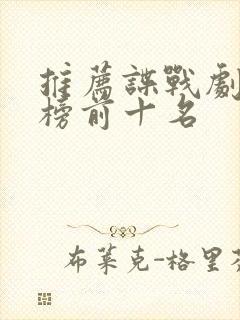 推薦諜戰劇
榜前十名
布萊克-格里芬